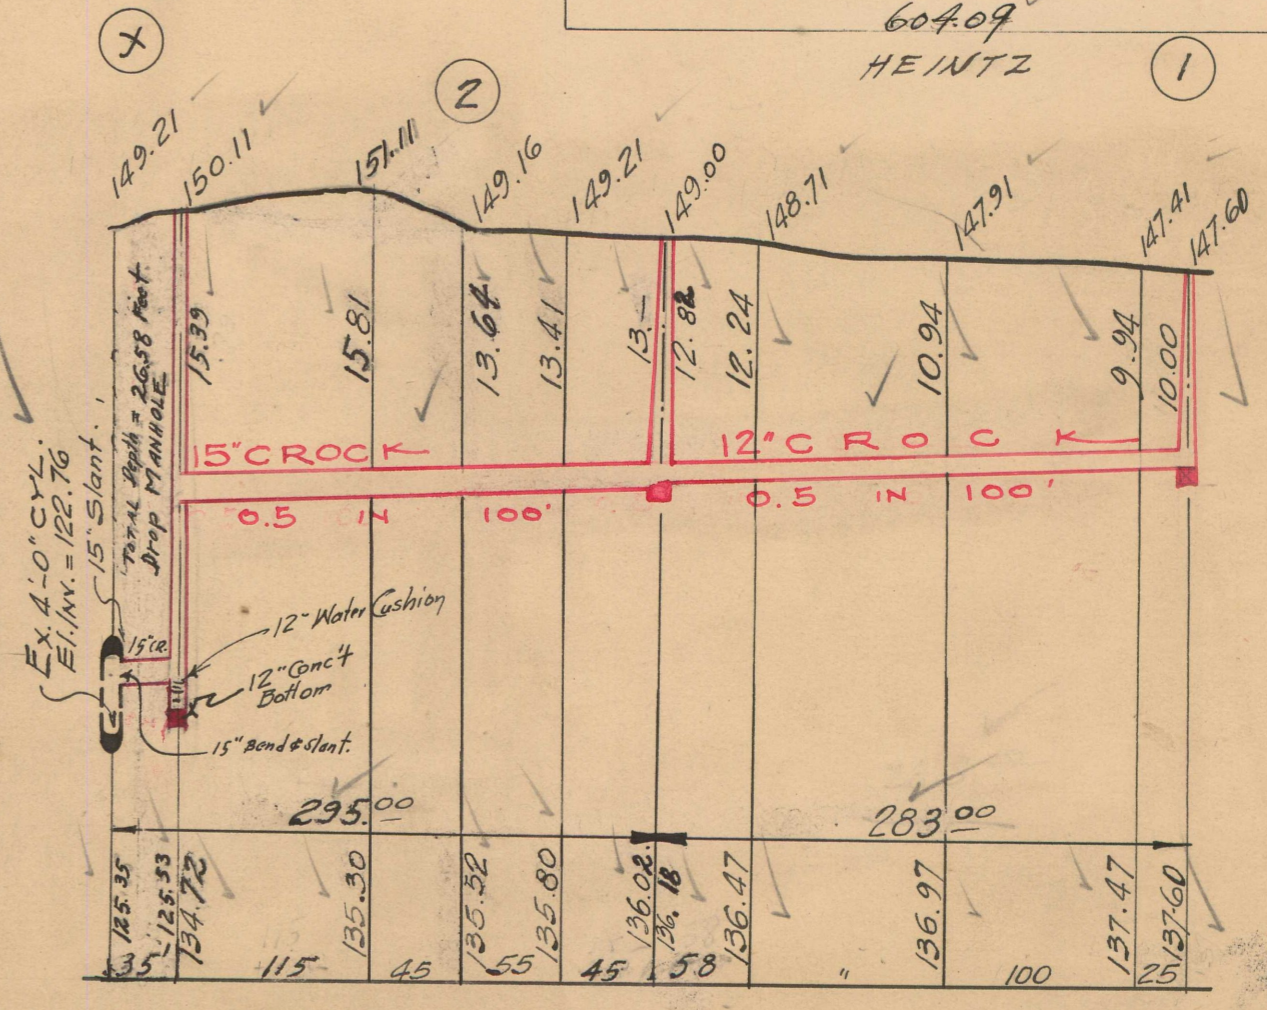 604.09
HEINTZ
X
2
1
149.21
150.11
151.11
149.16
149.21
149.00
148.71
147.91
147.41
147.60
15.39
15.81
13.64
13.41
13.-
12.82
12.24
10.94
9.94
10.00
Total Depth = 26.58 Feet.
Drop MANHOLE
Ex. 4'-0" CYL.
El. INV. = 122.76
15" Slant.
15" CROCK
12" CROCK
0.5 IN 100'
0.5 IN 100'
15" CR.
12" Water Cushion
12" Conc't
Bottom
15" Bend & Slant.
295.00
283.00
125.35
125.53
134.72
135.30
135.52
135.80
136.02
136.18
136.47
136.97
137.47
137.60
35
115
45
55
45
58
"
100
25